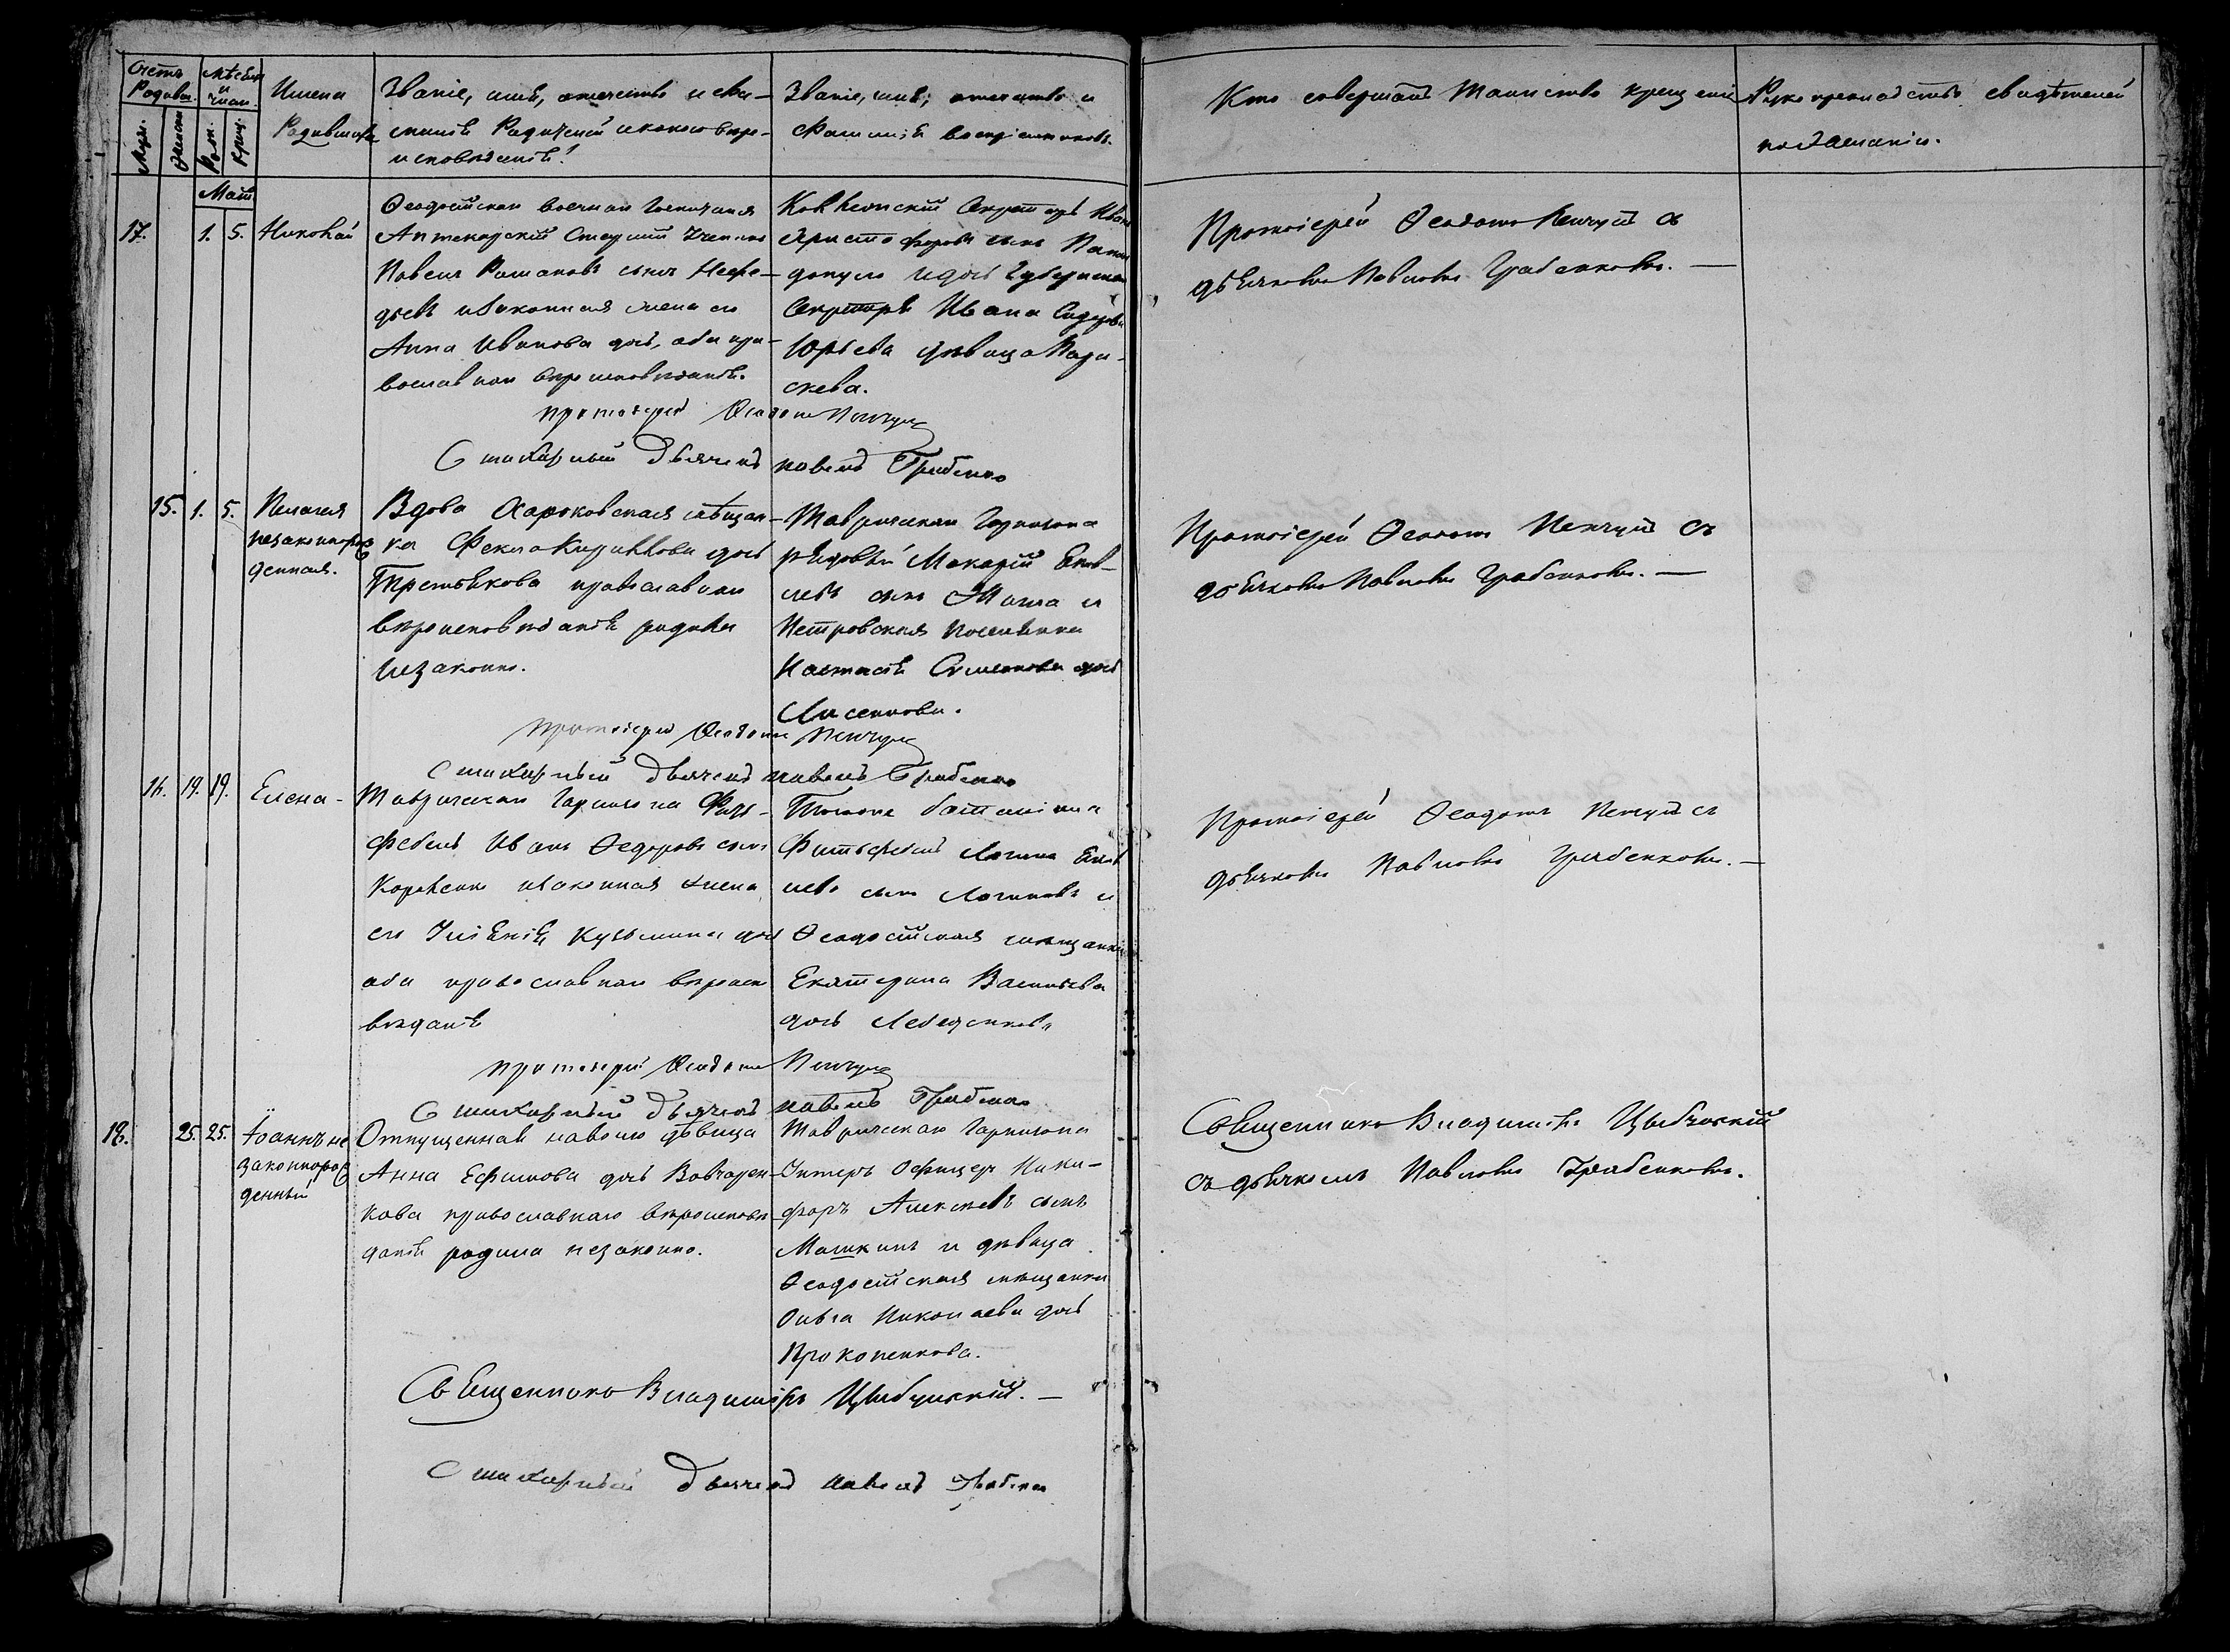 Счетъ Родивш.
Мѣсяцъ и число.
Имена Родившихся
Званіе, имя, отечество и фа-
милія Родителей и какого вѣро-
исповѣданія!
Званіе, имя, отечество и
Фамилія воспріемниковъ.
Кто совершалъ таинство крещенія
Рукоприкладство свидѣтелей
по желанію.
Муж.
Женск.
Рож.
Крещ.
Май
17.
1. 5. Николай
Феодосійскаго военнаго Госпиталя
Аптекарскій Старшій Ученикъ
Павелъ Романовъ сынъ
и законная жена его
Анна Иванова дочь, оба пра-
вославнаго вѣроисповѣданія.
Коллежскій Секретарь Иванъ
Христофоровъ сынъ
и дочь Губернскаго
Секретаря Ивана
Юрьева дѣвица Пара-
скева.
Протоіерей Феодотъ с
дьячкомъ Павломъ Грабенкомъ. —
Протоіерей Феодотъ
Стихарный Дьячекъ Павелъ Грабенко
15. 1. 5. Пелагея
незаконнорож
денная.
Вдова Харьковская мѣщан-
ка Фекла Кириллова дочь
Третьякова православнаго
вѣроисповѣданія родила
незаконно.
Таврическаго Гарнизона
рядовый Макарій Яков-
левъ сынъ и
Петровская поселянка
Настасія Симеонова дочь
Лисенкова.
Протоіерей Феодотъ съ
дьячкомъ Павломъ Грабенкомъ. —
Протоіерей Феодотъ
Стихарный Дьячекъ Павелъ Грабенко
16. 19. 19. Елена -
Таврическаго Гарнизона Фелд-
фебель Иванъ Федоровъ сынъ
и законная жена
его Іуліянія Кузьмина дочь
оба православнаго вѣроиспо
вѣданія
баталіона
Фелдфебель Логинъ Яков
левъ сынъ Логиновъ и
Феодосійская мѣщанка
Екатерина Васильева
дочь Лебеденкова
Протоіерей Феодотъ съ
дьячкомъ Павломъ Грабенкомъ. —
Протоіерей Феодотъ
Стихарный Дьячекъ Павелъ Грабенко
18. 25. 25. Іоаннъ не
законнорож
денный
Отпущенная на волю дѣвица
Анна Ефимова дочь Вовчарен-
кова православнаго вѣроисповѣ-
данія родила незаконно.
Таврическаго Гарнизона
Унтеръ Офицеръ Ники-
форъ Алексѣевъ сынъ
Машкинъ и дѣвица
Феодосійская мѣщанка
Ольга Николаева дочь
Прокопенкова.
Священникъ Владиміръ Цыбульскій
съ дьячкомъ Павломъ Грабенкомъ.
Священникъ Владиміръ Цыбульскій. —
Стихарный Дьячекъ Павелъ Грабенко